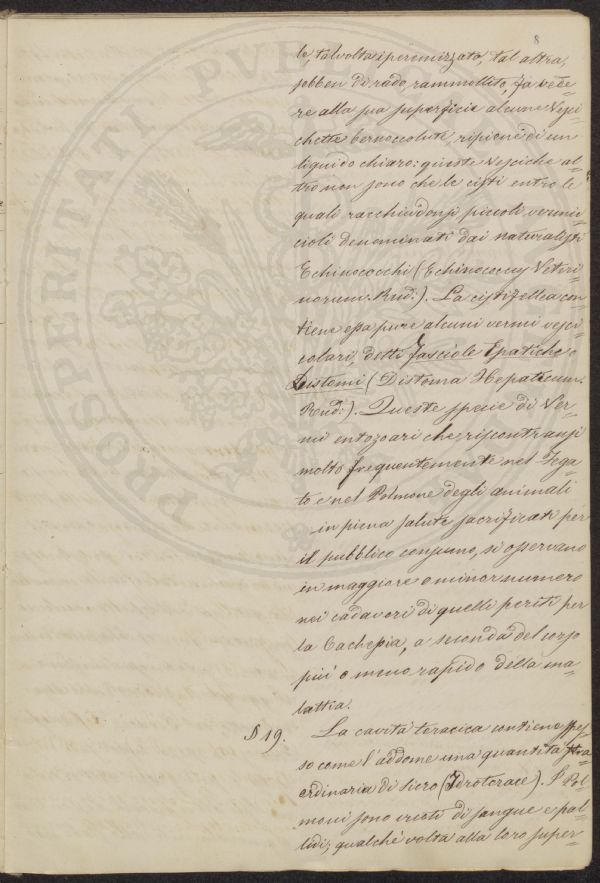 8
le, talvolta iperemizzato, tal altra,
sebben di rado, rammollito, fa vede=
re alla sua superficie alcune Vesci=
chette bernoccolute, ripiene di un
liquido chiaro: queste Vesciche al=
tro non sono che le cisti entro le
quali racchiudonsi piccoli vermic=
cioli denominati dai naturalisti
Echinococchi (Echinococcus Veteri=
norum: Rud:). La cistifellea con=
tiene essa pure alcuni vermi vesci=
colari, detti Fasciole Epatiche o
Distomi (Distoma Hepaticum.
Rud:). Queste specie di Ver=
mi entozoari che riscontransi
molto frequentemente nel Fega=
to e nel Polmone degli animali
in piena salute sacrificati per
il pubblico consumo, si osservano
in maggiore o minor numero
nei cadaveri di quelli periti per
la Cachessia, a seconda del corso
piu' o meno rapido della ma=
lattia.
§ 19. La cavità toracica contiene spes=
so come l'addome una quantità stra=
ordinaria di siero (Idrotorace). I Pol=
moni sono vuoti di sangue e pal=
lidi; qualche volta alla loro super=
PROSPERITATI PVBL